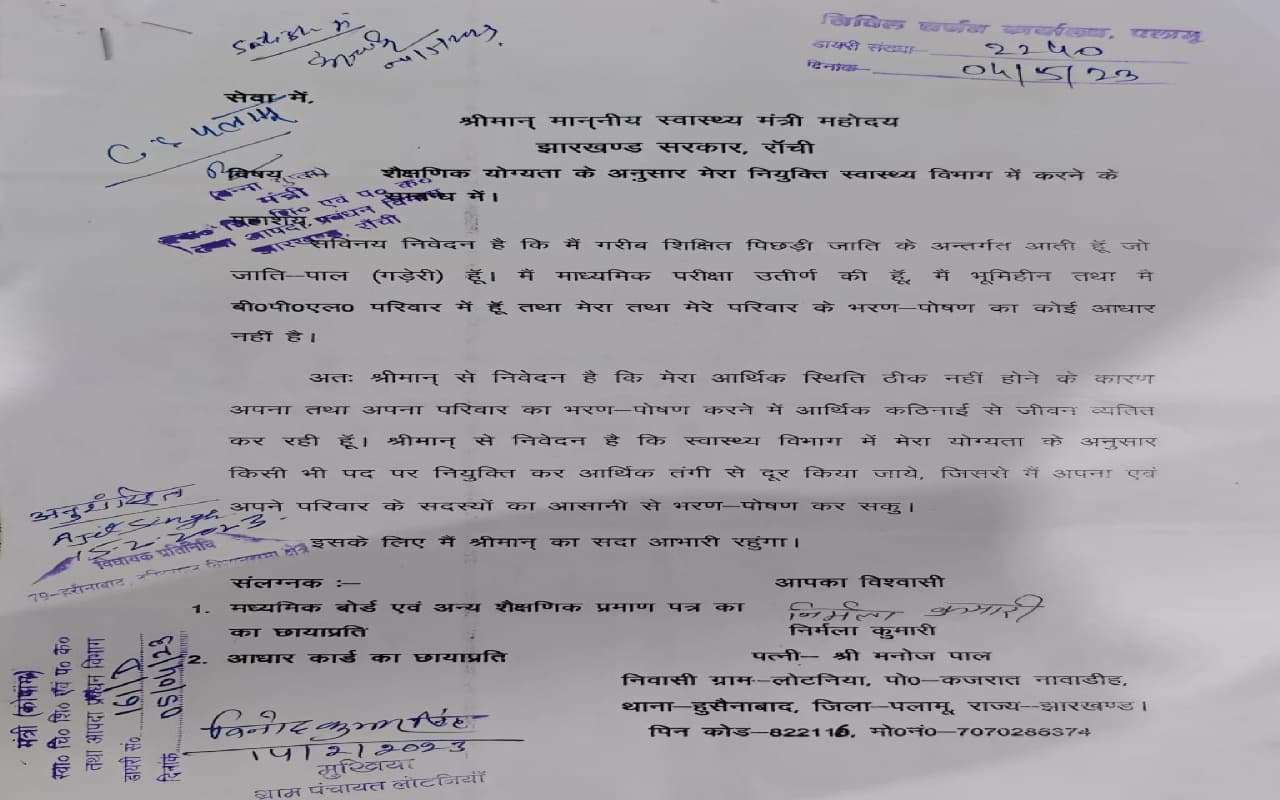 Satish ji
सिविल सर्जन कार्यालय, पलामू
डायरी संख्या 2240
दिनांक 04/5/23
सेवा में,
C.S पलामू
श्रीमान् माननीय स्वास्थ्य मंत्री महोदय
झारखण्ड सरकार, राँची
विषय शैक्षणिक योग्यता के अनुसार मेरा नियुक्ति स्वास्थ्य विभाग में करने के
सम्बंध में।
(बन्ना गुप्ता)
मंत्री
महाशय,
स्वा० चि० शि० एवं प० क०
तथा आपदा प्रबंधन विभाग
झारखण्ड, राँची
सविनय निवेदन है कि मैं गरीब शिक्षित पिछड़ी जाति के अन्तर्गत आती हूँ जो
जाति–पाल (गड़ेरी) हूँ। मैं माध्यमिक परीक्षा उतीर्ण की हूँ, मैं भूमिहीन तथा मै
बी०पी०एल० परिवार में हूँ तथा मेरा तथा मेरे परिवार के भरण–पोषण का कोई आधार
नहीं है।
अतः श्रीमान् से निवेदन है कि मेरा आर्थिक स्थिति ठीक नहीं होने के कारण
अपना तथा अपना परिवार का भरण–पोषण करने में आर्थिक कठिनाई से जीवन व्यतित
कर रही हूँ। श्रीमान् से निवेदन है कि स्वास्थ्य विभाग में मेरा योग्यता के अनुसार
किसी भी पद पर नियुक्ति कर आर्थिक तंगी से दूर किया जाये, जिससे मैं अपना एवं
अपने परिवार के सदस्यों का आसानी से भरण–पोषण कर सकु।
इसके लिए मैं श्रीमान् का सदा आभारी रहुंगा।
अनुशंसित
Ajit Singh
15.2.2023
विधायक प्रतिनिधि
79-हुसैनाबाद, विधानसभा क्षेत्र
संलग्नक :–
1. मध्यमिक बोर्ड एवं अन्य शैक्षणिक प्रमाण पत्र का
का छायाप्रति
2. आधार कार्ड का छायाप्रति
आपका विश्वासी
निर्मला कुमारी
निर्मला कुमारी
पत्नी– श्री मनोज पाल
निवासी ग्राम–लोटनिया, पो०–कजरात नावाडीह,
थाना–हुसैनाबाद, जिला–पलामू, राज्य–झारखण्ड।
पिन कोड–822116, मो०नं०–7070286374
विनोद कुमार सिंह
14/2/2023
मुखिया
ग्राम पंचायत लोटनियाँ
मंत्री (कोषांग)
स्वा० चि० शि० एवं प० क०
तथा आपदा प्रबंधन विभाग
डायरी सं० 161/D
दिनांक 05/04/23